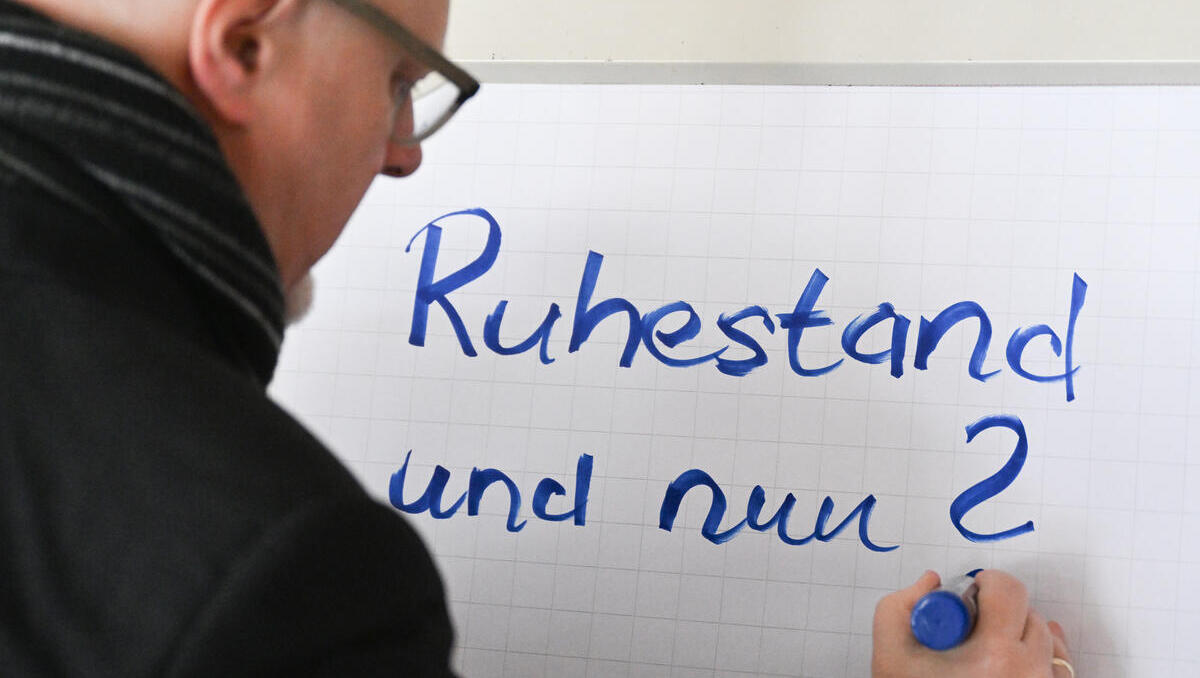 Ruhestand
und nun?